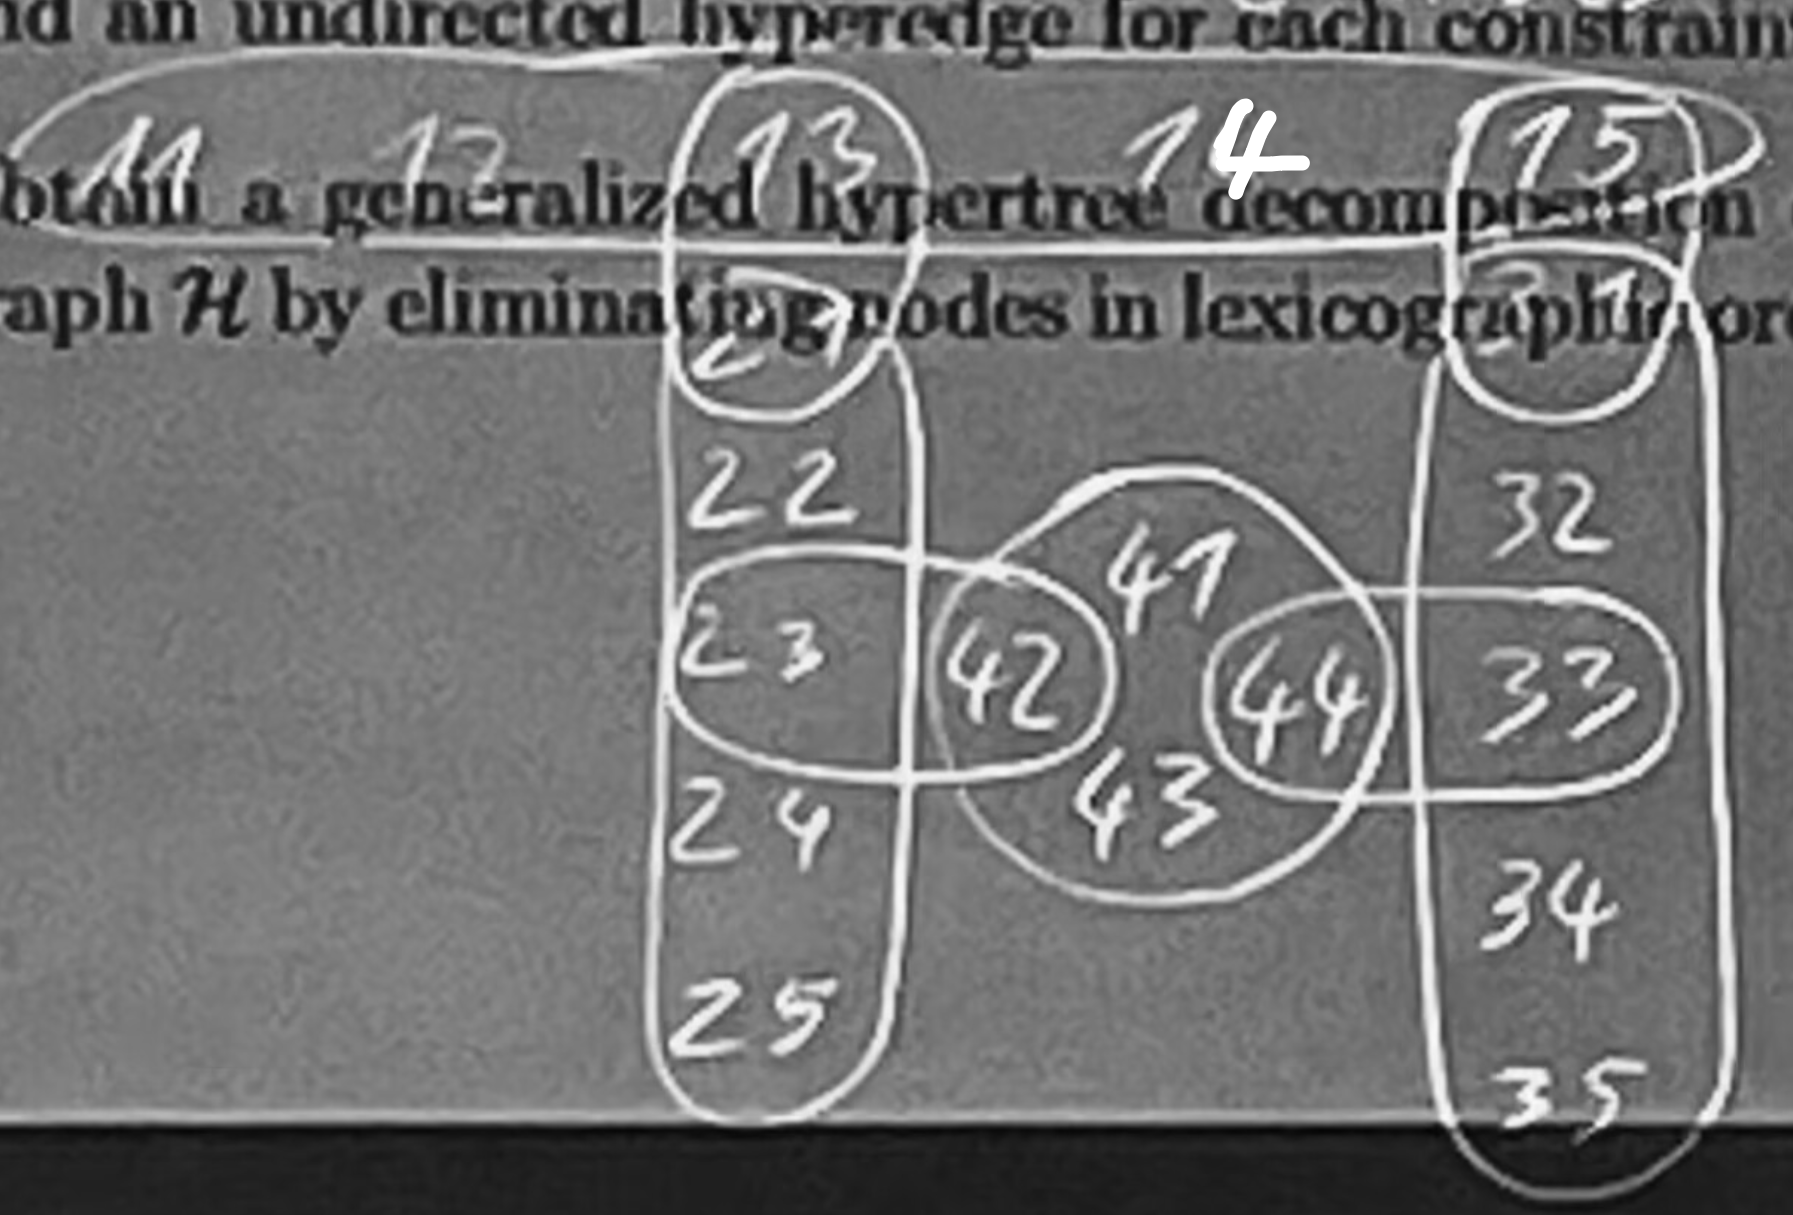 nd an undirected hyperedge for each constrain
11 12 13 14 15
btain a generalized hypertree decomposition
raph H by eliminating nodes in lexicographic ord
21 31
22 32
41
23 42 44 33
24 43
34
25
35